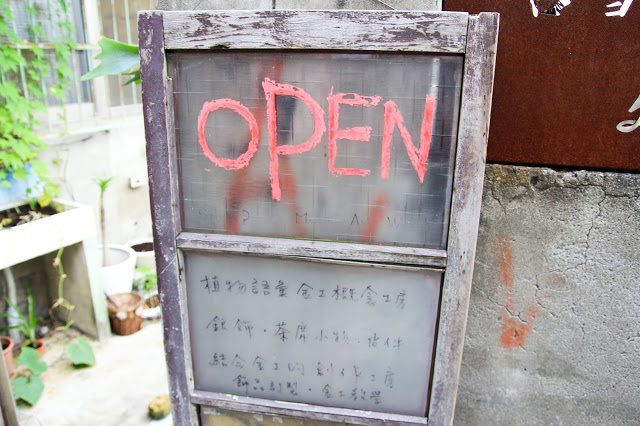 OPEN
植物語彙 金工概念工房
銀飾·茶席小物·掛件
結合金工的創作工房
飾品訂製·金工教學